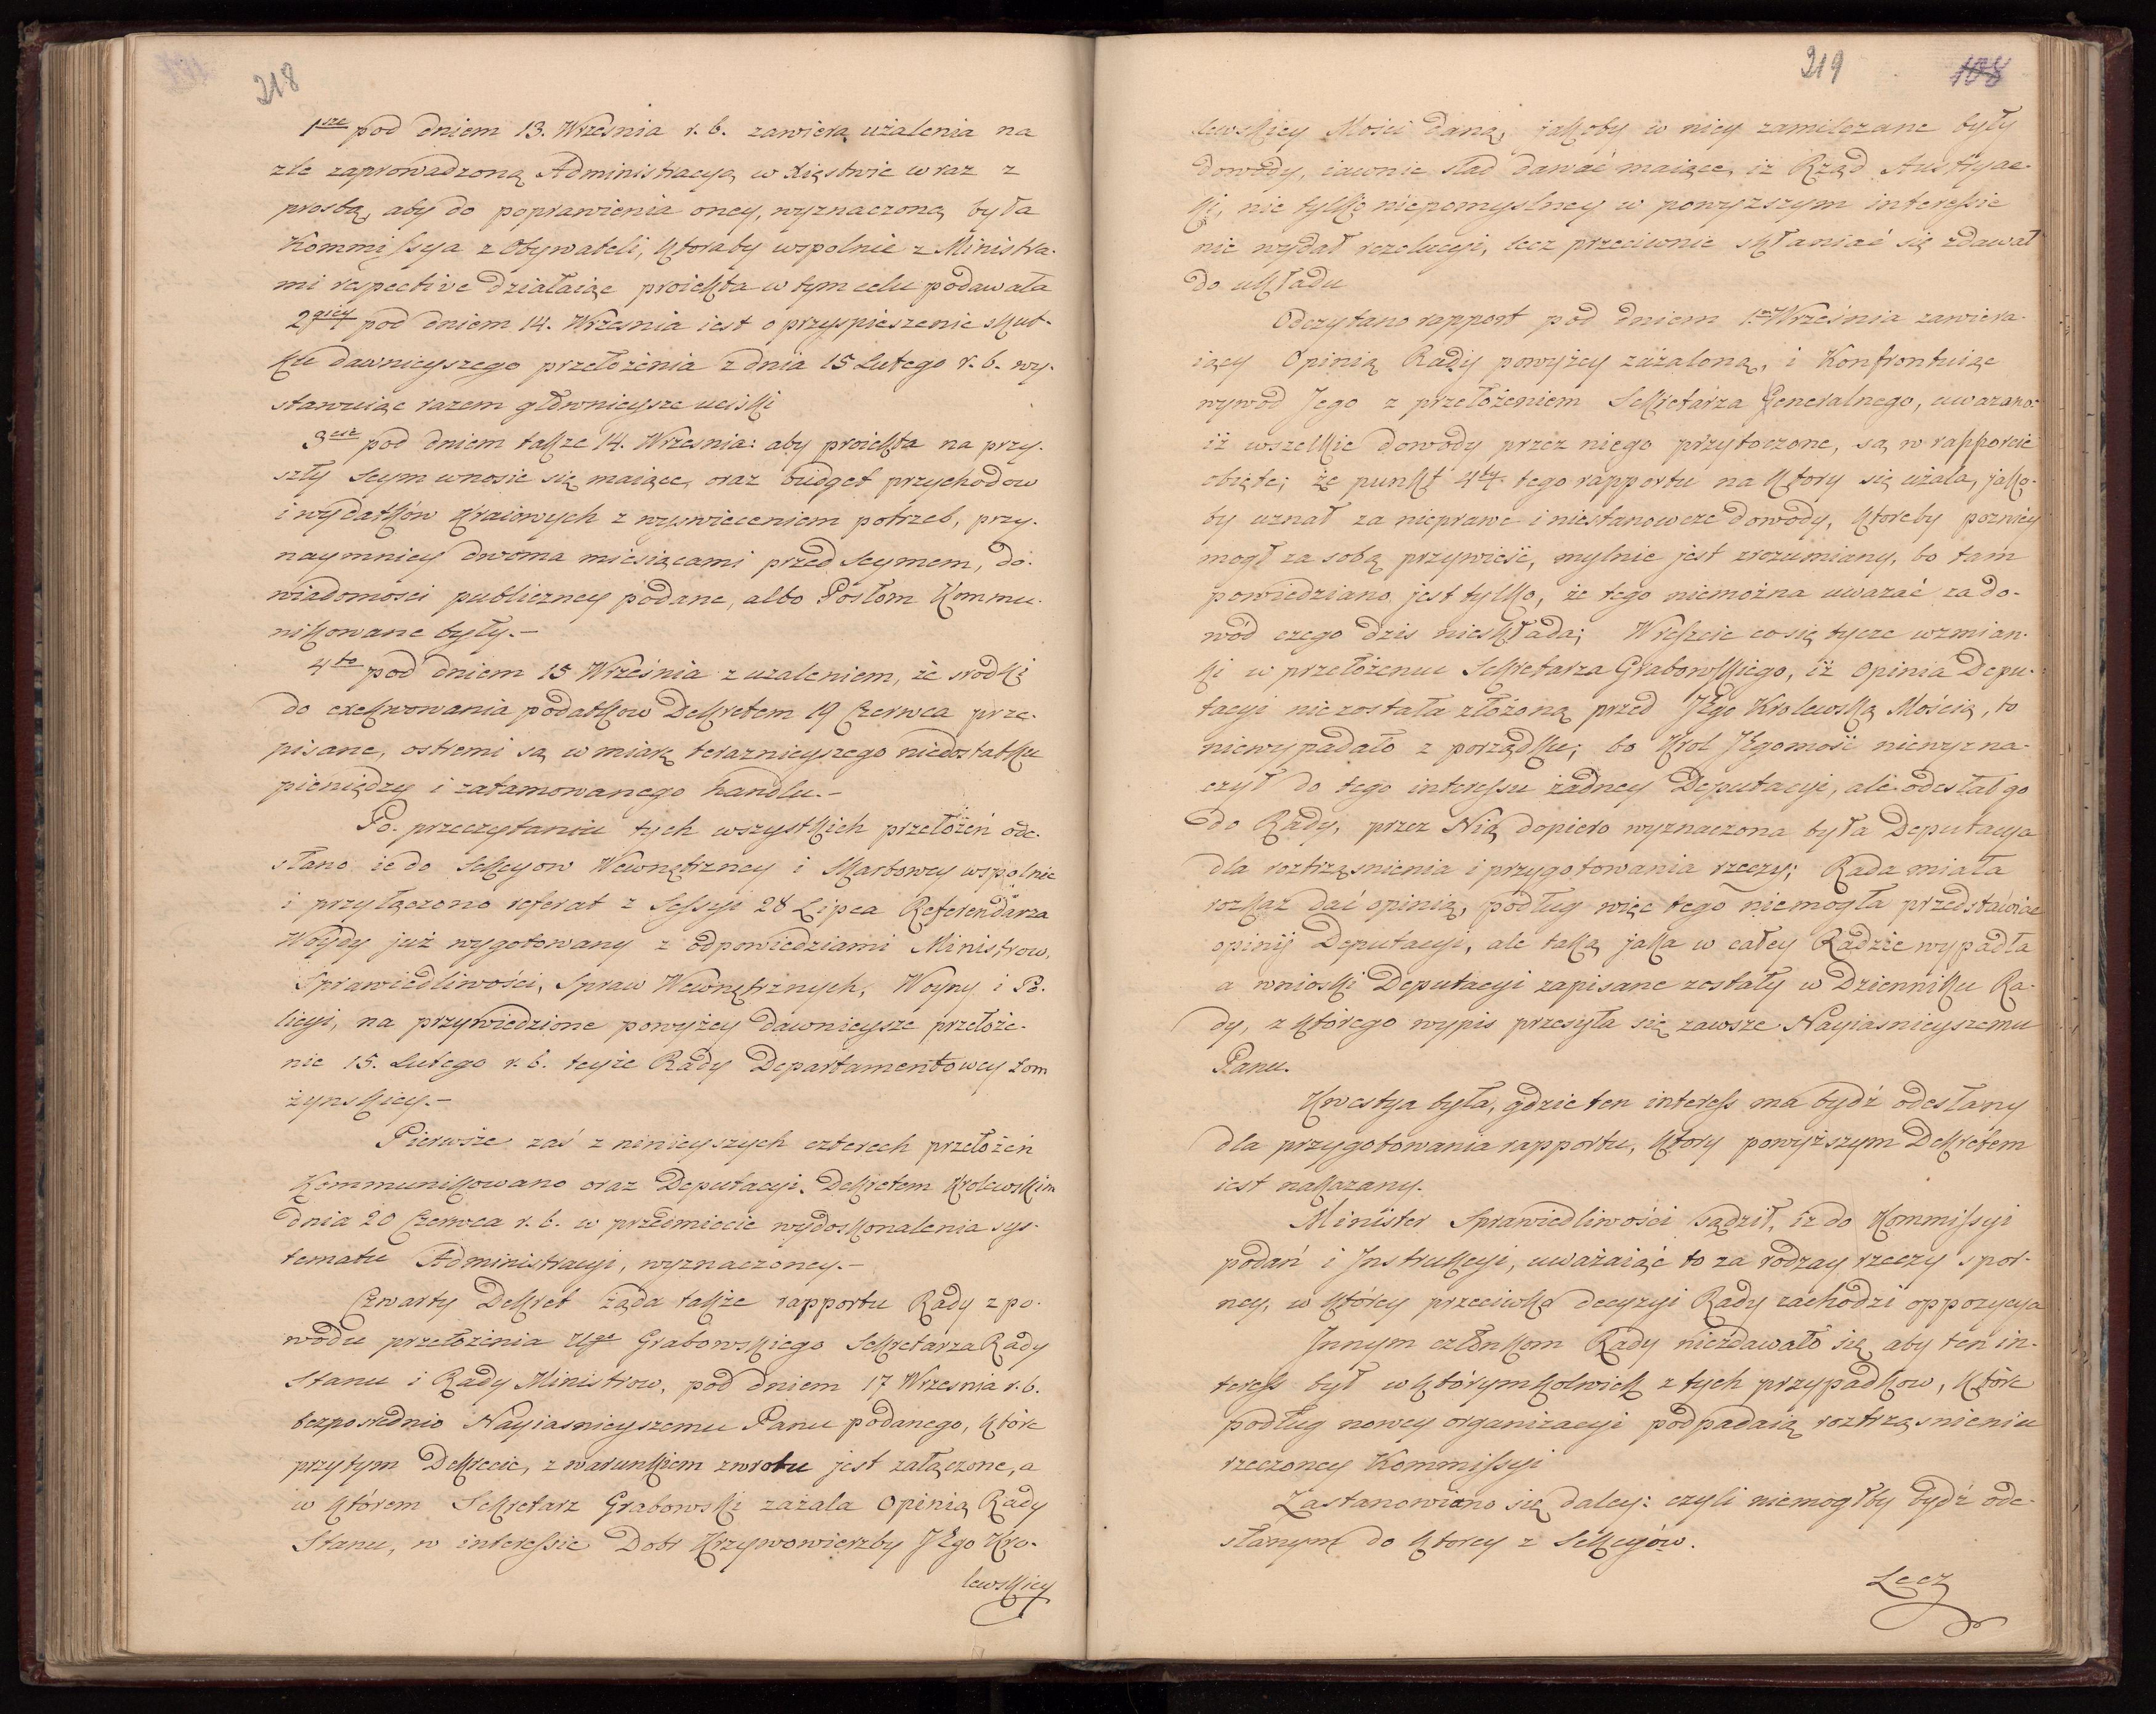 218
1sze pod dniem 13. Wrzesnia r. b. zawiera użalenia na
zle zaprowadzoną Administracyą w Xięstwie wraz z
prosbą, aby do poprawienia oney, wyznaczoną była
Kommissya z Obywateli, ktoraby wspolnie z Ministra-
mi respective działaiąc proiekta w tym celu podawała
2giey pod dniem 14. Wrzesnia iest o przyspieszenie skut-
ku dawnieyszego przełożenia z dnia 15 Lutego r. b. wy-
stawuiąc razem głownieysze uciski
3cie pod dniem także 14. Wrzesnia: aby proiekta na przy-
szły Seym wnosic się maiące, oraz budget przychodow
i wydatków kraiowych z wyswieceniem potrzeb, przy-
naymniey dwoma miesiącami przed Seymem, do-
wiadomosci publiczney podane, albo Posłom Kommu-
nikowane były.-
4to pod dniem 15 Września z użaleniem, że srodki
do exekwowania podatkow Dekretem 19 Czerwca prze-
pisane, ostremi są w miarę teraznieyszego niedostatku
pieniędzy i zatamowanego handlu.-
Po przeczytaniu tych wszystkich przełożeń ode-
słano ie do Sekcyow Wewnętrzney i Skarbowey wspolnie
i przyłączono referat z Sessyi 28 Lipca Referendarza
Woydy już wygotowany z odpowiedziami Ministrow,
Sprawiedliwości, Spraw Wewnętrznych, Woyny i Po-
licyi, na przywiedzione powyżey dawnieysze przełoże-
nie 15. Lutego r. b. teyże Rady Departamentowey Łom
żynskiey.-
Pierwsze zaś z ninieyszych czterech przełożeń
Kommunikowano oraz Deputacyi, Dekretem Krolewskim
dnia 20 Czerwca r. b. w przedmiocie wydoskonalenia sys-
tematu Administracyi, wyznaczoney.-
Czwarty Dekret żąda także rapportu Rady z po-
wodu przełożenia Ugo Grabowskiego Sekretarza Rady
Stanu i Rady Ministrow, pod dniem 17 Wrzesnia r. b.
bezposrednio Nayiasnieyszemu Panu podanego, które
przytym Dekrecie, z warunkiem zwrotu jest załączone, a
w którem Sekretarz Grabowski zażala Opinią Rady
Stanu, w interessie Dobr Krzywowierzby JKgo Kro-
lewskiey
219
108
lewskiey Mości daną, iakoby w niey zamilczane były
dowody, iawnie slad dawać maiące, iż Rząd Austryac-
ki, nie tylko niepomyslney w powyzszym interessie
nie wydał rezolucyi, lecz przeciwnie skłaniać się zdawał
do układu
Odczytano rapport pod dniem Września zawiera-
iący Opinią Rady powyżey zażaloną, i Konfrontuiąc
wywod Jego z przełożeniem Sekretarza Generalnego, uwazano:
iż wszelkie dowody przez niego przytoczone, są w rapporcie
obięte; że punkt 4ty tego rapportu na ktory się użala, jako-
by uznał za nieprawe i niestanowcze dowody, ktoreby pozniey
mogł za sobą przywieść, mylnie jest zrozumiany, bo tam
powiedziano jest tylko, że tego niemożna uważać za do-
wód czego dzis nieskłada; Wreszcie co się tycze wzmian-
ki w przełożeniu Sekretarza Grabowskiego, iż Opinia Depu-
tacyi nie została złożoną przed JKgo Krolewską Mością, to
niewypadało z porządku; bo Krol JKgomość niewyzna-
czył do tego interessu żadney Deputacyi, ale odesłał go
do Rady, przez Nią dopiero wyznaczona była Deputacya
dla roztrząsnienia i przygotowania rzeczy; Rada miała
rozkaz dać opinią, podług więc tego niemogła przedstawiac
opinij Deputacyi, ale taką jaka w całey Radzie wypadła
a wnioski Deputacyi zapisane zostały w Dzienniku Ra-
dy, z którego wypis przesyła się zawsze Nayiasnieyszemu
Panu.
Kwestya była, gdzie ten interess ma bydź odesłany
dla przygotowania rapportu, ktory powyższym Dekretem
iest nakazany.
Minister Sprawiedliwości sądził, iż do Kommissyi
podań i Jnstrukcyi, uważaiąc to za rodzay rzeczy spor-
ney, w którey przeciwko decyzyi Rady zachodzi oppozycya
Jnnym członkom Rady niezdawało się aby ten in-
teress był w którymkolwiek z tych przypadkow, które
podług nowey organizacyi podpadaią roztrząsnieniu
rzeczoney Kommissyi
Zastanowiono się daley: czyli niemogłby bydź ode-
słanym do ktorey z Sekcyów.
Lecz